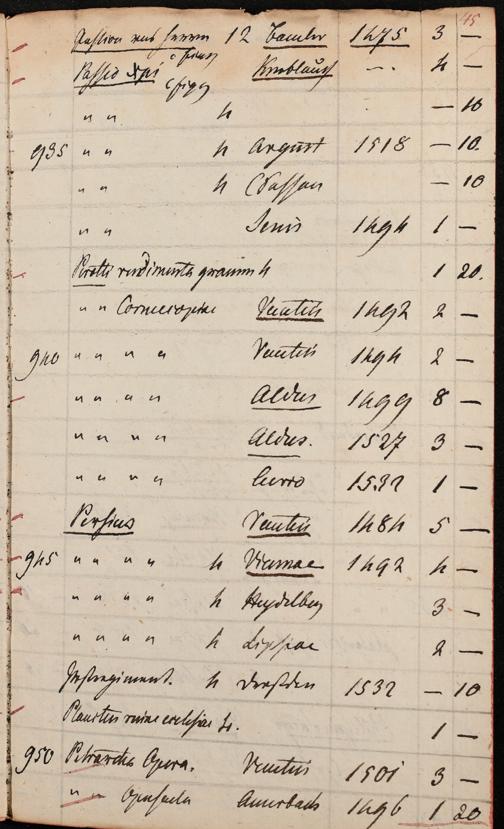 45
Passion uns Herrn 12 Bamler 1475 3 —
Passio Xpi c figur Knoblauch —. 4 —
c figg
" " 4 — 10
935 " " 4 Argent 1518 — 10.
" " 4 — 10
" " Jenis 1494 1 —
Perotti rudimenta gramm 4 1 20.
" " Cornucopiae Venetiis 1492 2 —
940 " " " " Venetiis 1494 2 —
" " " " Aldus 1499 8 —
" " " " Aldus. 1527 3 —
" " " " 1532 1 —
Persius Venetiis 1484 5 —
945 " " " " 4 Viennae 1492 4 —
" " " " 4 Heydelberg 3 —
" " " " 4 Lipsiae 2 —
Pestregiment. 4 Dresden 1532 — 10
Planctus ruine ecclesiae 1 —
950 Petrarcha Opera. Venetiis 1501 3 —
" " Opuscula Amerbach 1496 1 20